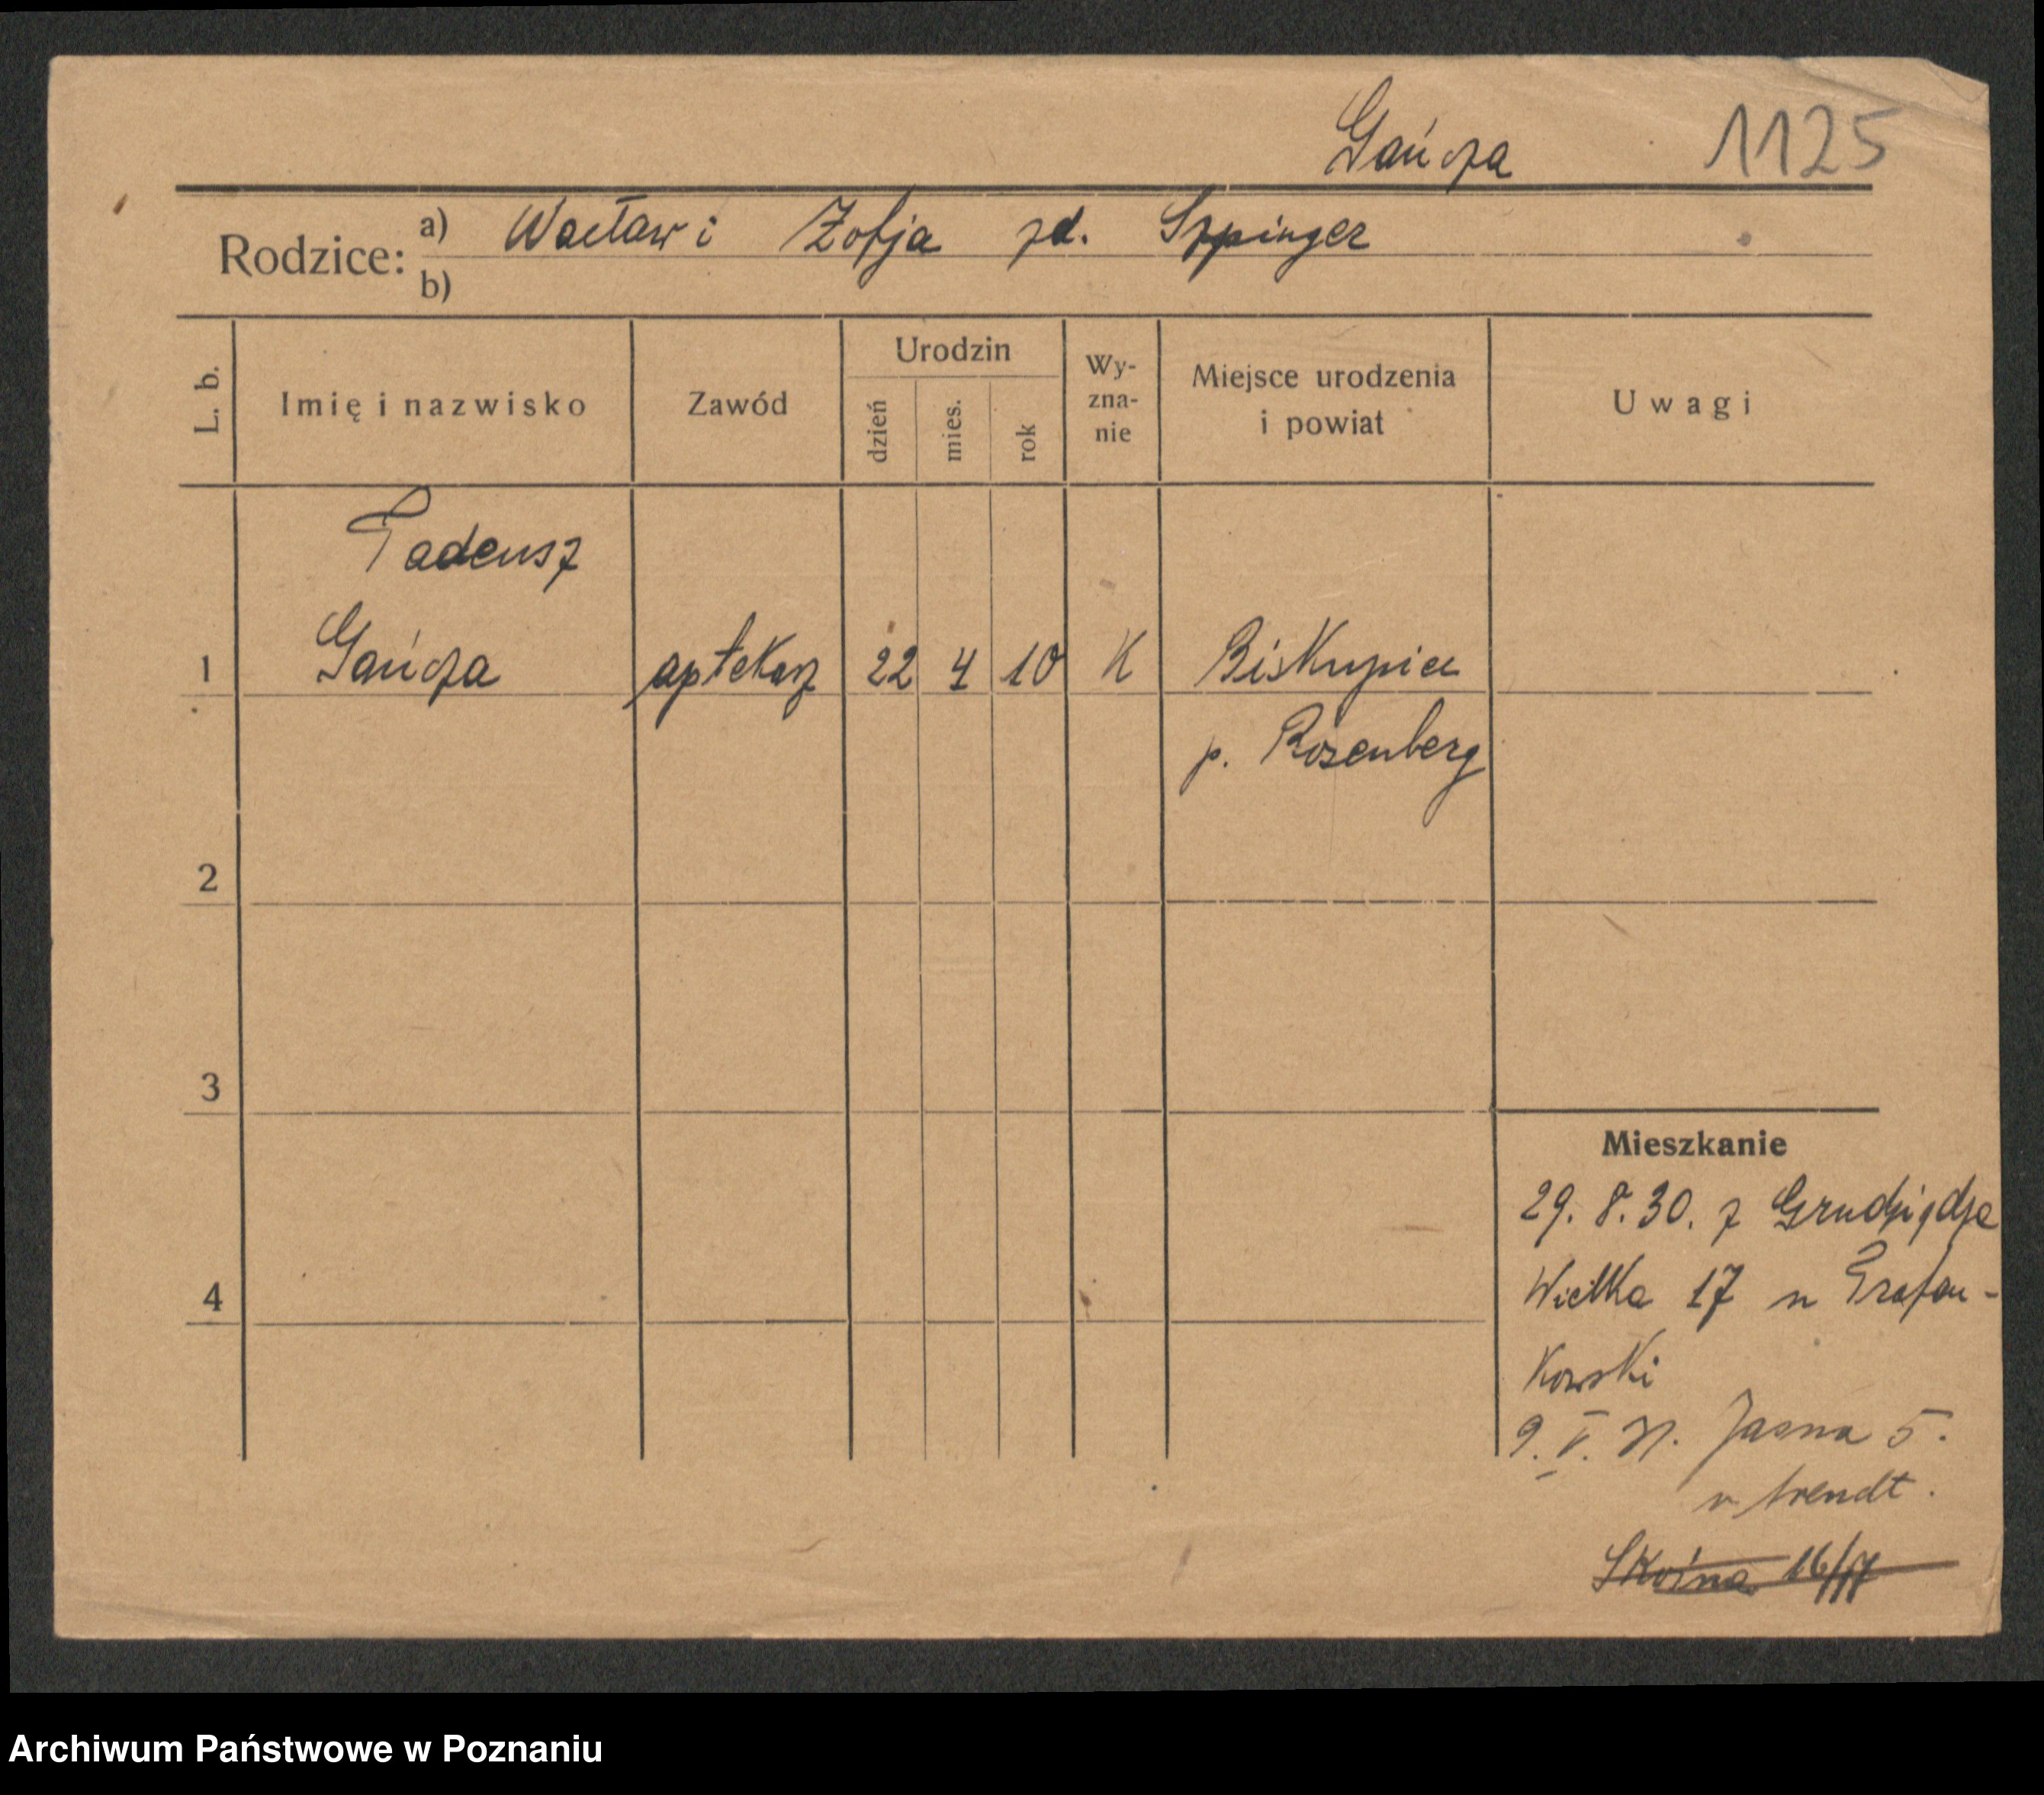 Gańcza 1125
Rodzice: a) Wacław i Zofja zd. Szpinger
b)
L. b. Imię i nazwisko Zawód Urodzin dzień mies. rok Wy-zna-nie Miejsce urodzenia i powiat Uwagi
Tadeusz
1 Gańcza aptekarz 22 4 10 K Biskupice
p. Rosenberg
2
3
Mieszkanie
29. 8. 30. z Grudziądza
4 Wielka 17 u
kowski
9. V. 31. Jasna 5.
u
Skośna 16/17
Archiwum Państwowe w Poznaniu